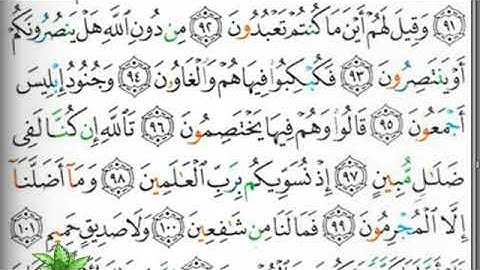 ﴿٩١﴾ وَقِيلَ لَهُمْ أَيْنَ مَا كُنتُمْ تَعْبُدُونَ ﴿٩٢﴾ مِن دُونِ ٱللَّهِ هَلْ يَنصُرُونَكُمْ
أَوْ يَنتَصِرُونَ ﴿٩٣﴾ فَكُبْكِبُوا۟ فِيهَا هُمْ وَٱلْغَاوُۥنَ ﴿٩٤﴾ وَجُنُودُ إِبْلِيسَ
أَجْمَعُونَ ﴿٩٥﴾ قَالُوا۟ وَهُمْ فِيهَا يَخْتَصِمُونَ ﴿٩٦﴾ تَٱللَّهِ إِن كُنَّا لَفِى
ضَلَٰلٍ مُّبِينٍ ﴿٩٧﴾ إِذْ نُسَوِّيكُم بِرَبِّ ٱلْعَٰلَمِينَ ﴿٩٨﴾ وَمَآ أَضَلَّنَآ
إِلَّا ٱلْمُجْرِمُونَ ﴿٩٩﴾ فَمَا لَنَا مِن شَٰفِعِينَ ﴿١٠٠﴾ وَلَا صَدِيقٍ حَمِيمٍ ﴿١٠١﴾